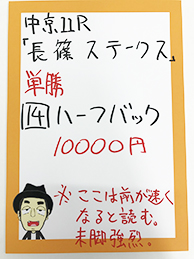 中京11R
「長篠ステークス」
単勝
14 ハーフバック
10000円
※ ここは前が速く
なると読む。
末脚強烈。